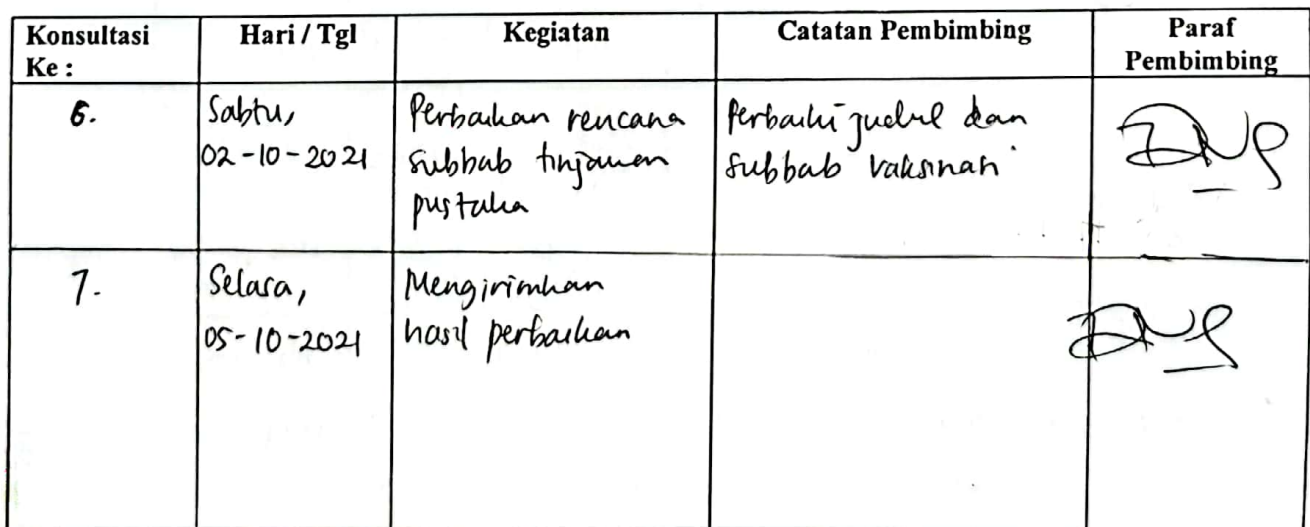 Konsultasi Ke :
Hari / Tgl
Kegiatan
Catatan Pembimbing
Paraf Pembimbing
6.
Sabtu,
02-10-2021
Perbaikan rencana
subbab tinjauan
pustaka
Perbaiki judul dan
subbab vaksinasi
7.
Selasa,
05-10-2021
Mengirimkan
hasil perbaikan